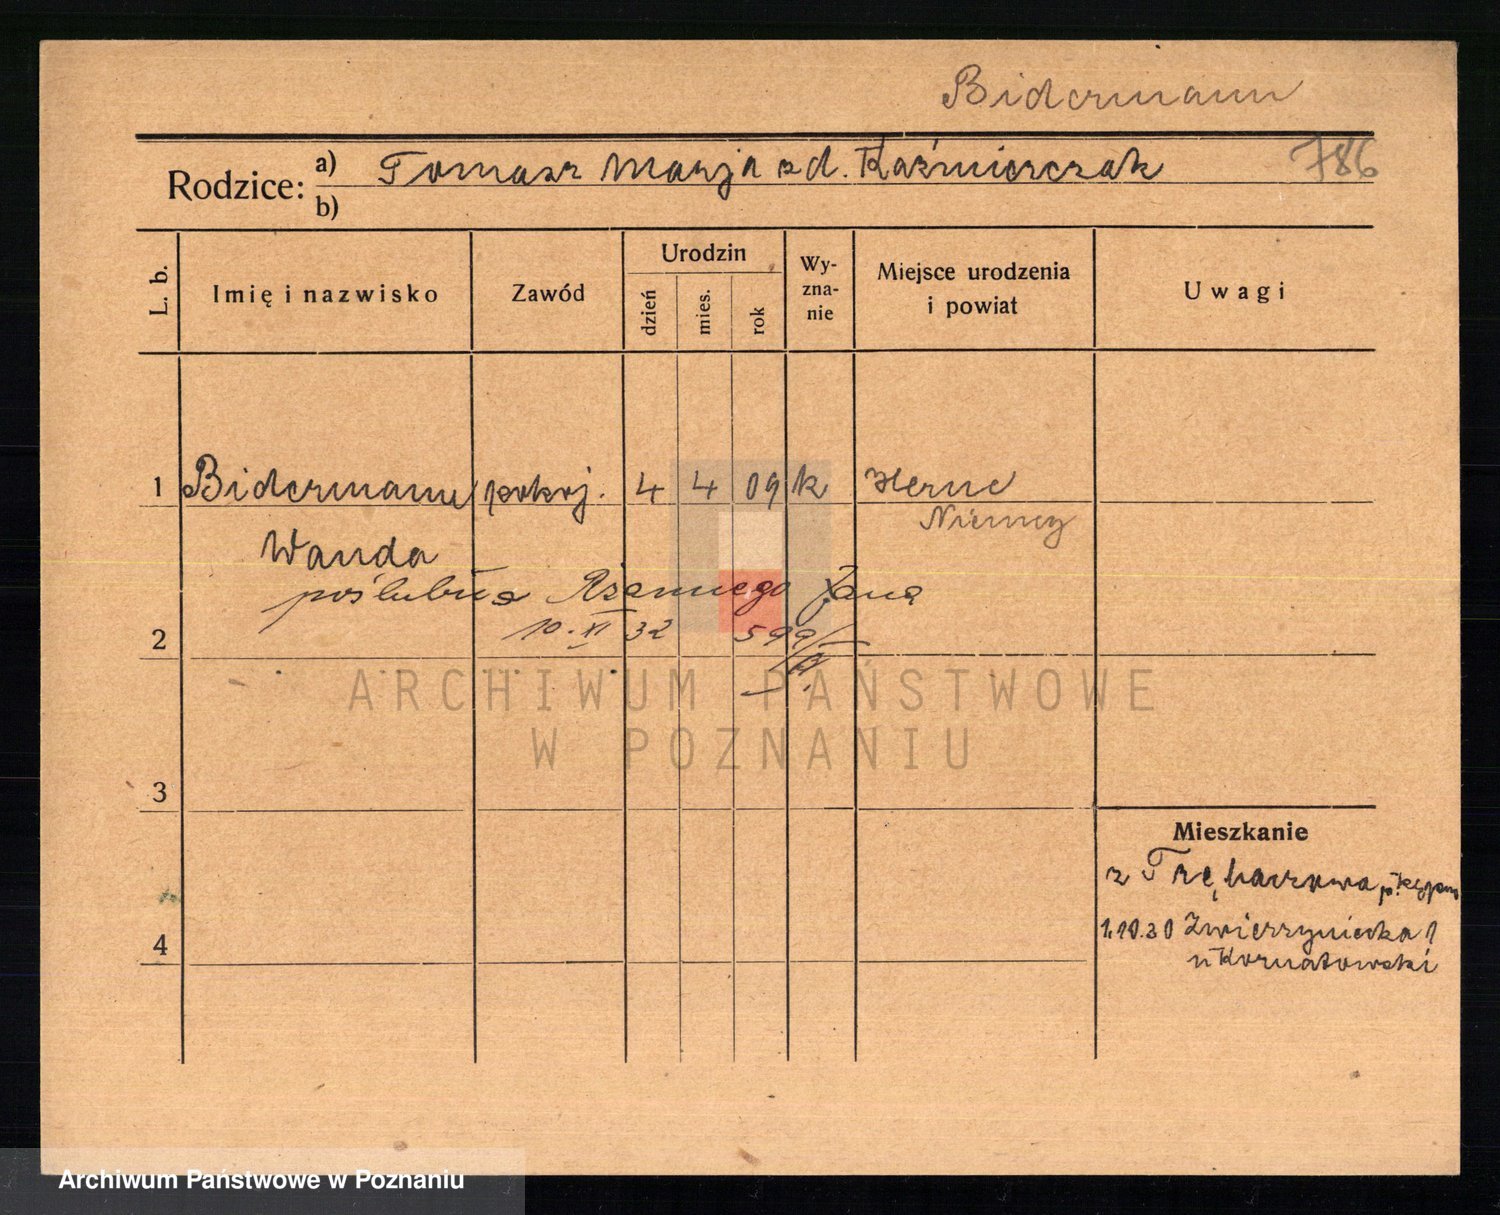 Bidermann
786
Rodzice:
a) Tomasz Marja z d. Kaźmierczak
b)
L. b. Imię i nazwisko Zawód Urodzin dzień mies. rok Wyznanie Miejsce urodzenia i powiat Uwagi
1 Bidermann pokoj. 4 4 09 k Herne
Niemcy
Wanda
poślubiła Jana
10. XI 32 599/
2
ARCHIWUM PAŃSTWOWE
W POZNANIU
3
Mieszkanie
z p. Kępno
4
1.10.30 Zwierzyniecka 1
u Kornatowski
Archiwum Państwowe w Poznaniu